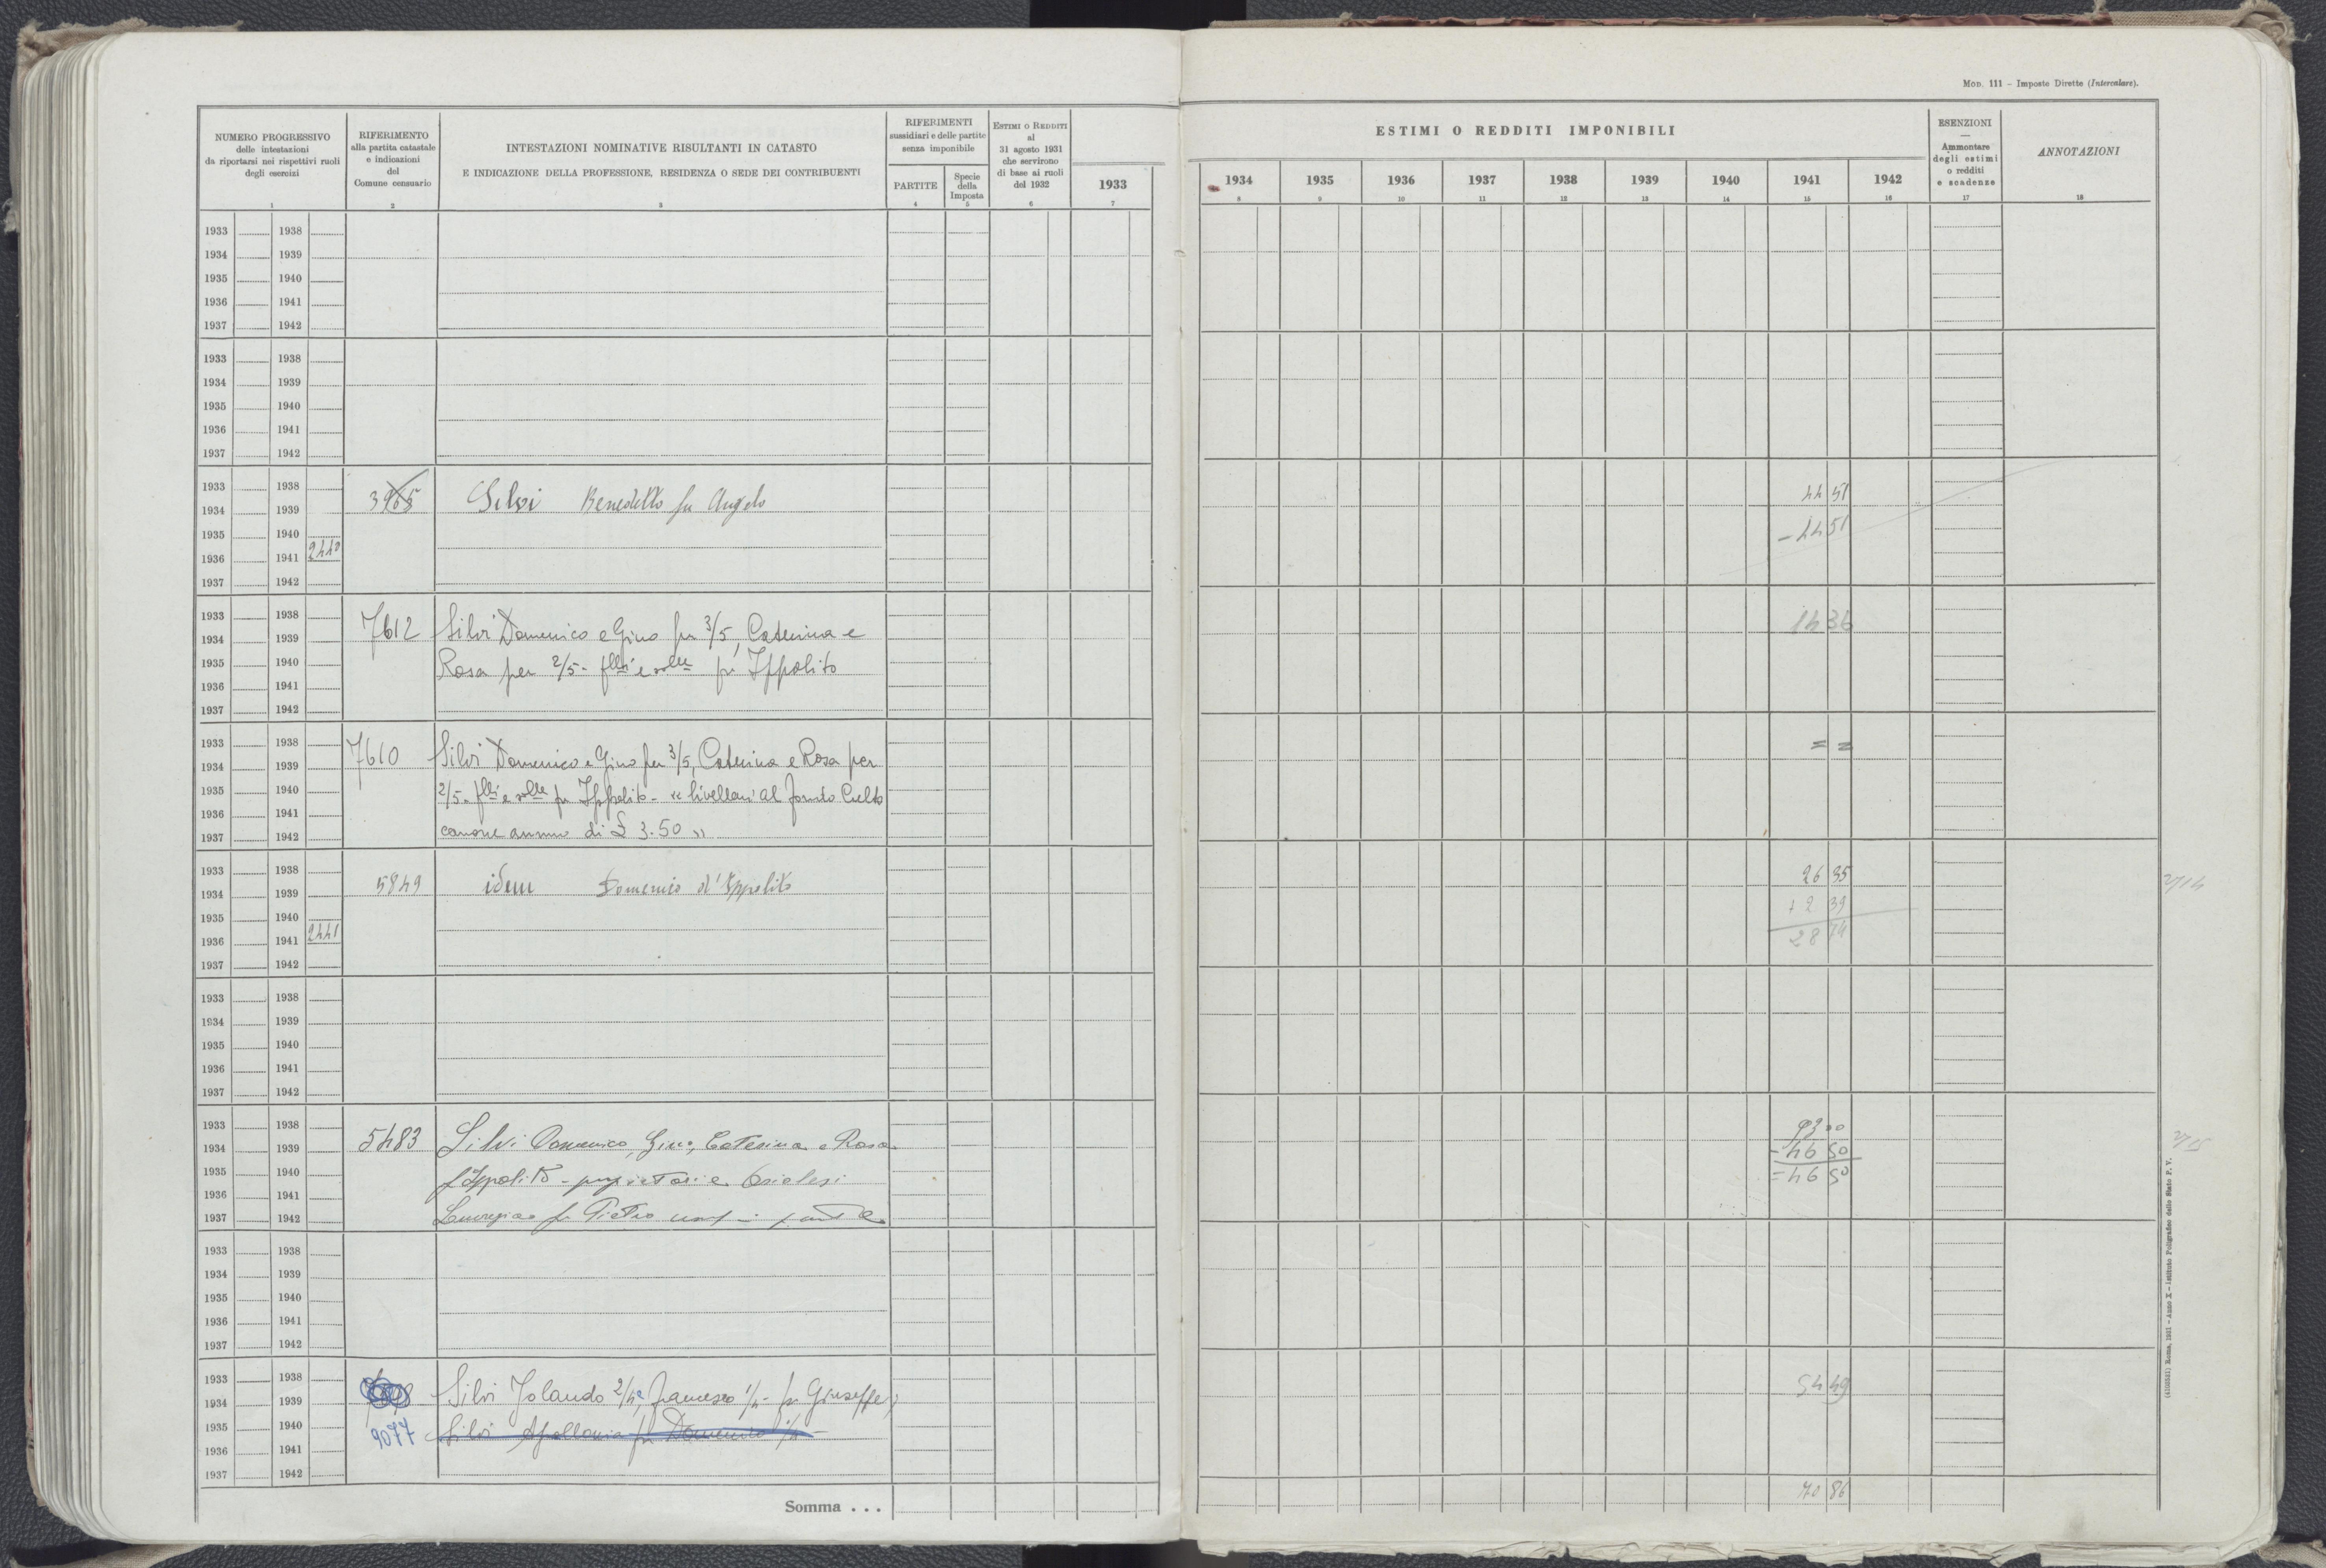 MOD. 111 – Imposte Dirette (Intercalare).
NUMERO PROGRESSIVO
delle intestazioni
da riportarsi nei rispettivi ruoli
degli esercizi
1
RIFERIMENTO
alla partita catastale
e indicazioni
del
Comune censuario
2
INTESTAZIONI NOMINATIVE RISULTANTI IN CATASTO
E INDICAZIONE DELLA PROFESSIONE, RESIDENZA O SEDE DEI CONTRIBUENTI
3
RIFERIMENTI
sussidiari e delle partite
senza imponibile
PARTITE
4
Specie
della
Imposta
5
ESTIMI O REDDITI
al
31 agosto 1931
che servirono
di base ai ruoli
del 1932
6
1933
7
ESTIMI O REDDITI IMPONIBILI
1934 1935 1936 1937 1938 1939 1940 1941 1942
8 9 10 11 12 13 14 15 16
ESENZIONI
—
Ammontare
degli estimi
o redditi
e scadenze
17
ANNOTAZIONI
18
1933 1938
1934 1939
1935 1940
1936 1941
1937 1942
1933 1938
1934 1939
1935 1940
1936 1941
1937 1942
1933 1938
1934 1939 3965 Silvi Benedetto fu Angelo 44 51
1935 1940 – 44 51
1936 1941 2440
1937 1942
1933 1938 7612 14 36
1934 1939 Silvi Domenico e Gino per 3/5, Caterina e
1935 1940 Rosa per 2/5 - flli e slle fu Ippolito
1936 1941
1937 1942
1933 1938 7610 = =
1934 1939 Silvi Domenico e Gino per 3/5, Caterina e Rosa per
1935 1940 2/5 - flli e slle fu Ippolito - « livellari al fondo Culto
1936 1941
1937 1942 canone annuo di £ 3.50 »
1933 1938 26 35
1934 1939 5849 idem Domenico d'Ippolito 2/14
1935 1940 + 2 39
1936 1941 2441 28 74
1937 1942
1933 1938
1934 1939
1935 1940
1936 1941
1937 1942
1933 1938 93 00
1934 1939 5483 Silvi Domenico, Gino, Caterina e Rosa 2/15
1935 1940 – 46 50
1936 1941 f Ippolito - proprietari e = 46 50
1937 1942 fu Pietro
1933 1938
1934 1939
1935 1940
1936 1941
1937 1942
1933 1938 54 49
1934 1939 Silvi Jolando 2/4 e Francesco 1/4 - fu Giuseppe;
1935 1940 9077 Silvi Apollonia fu Domenico 1/4 -
1936 1941
1937 1942
Somma . . . 70 86
(4105531) Roma, 1931 – Anno X – Istituto Poligrafico dello Stato P. V.